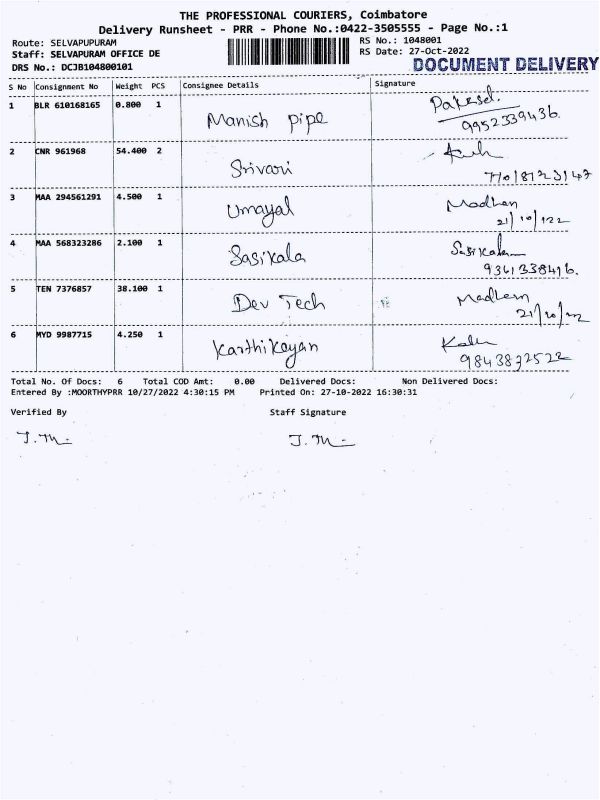 THE PROFESSIONAL COURIERS, Coimbatore
Delivery Runsheet - PRR - Phone No.:0422-3505555 - Page No.:1
Route: SELVAPUPURAM
Staff: SELVAPURAM OFFICE DE
DRS No.: DCJB104800101
RS No.: 1048001
RS Date: 27-Oct-2022
DOCUMENT DELIVERY
S No Consignment No Weight PCS Consignee Details Signature
1 BLR 610168165 0.800 1 Manish Pipe
9952339436.
2 CNR 961968 54.400 2 Srivari
3 MAA 294561291 4.500 1 Umayal Madhan
21/10/122
4 MAA 568323286 2.100 1 Sasikala Sasikala
9361338416.
5 TEN 7376857 38.100 1 Dev Tech Madhan
21/10/22
6 MYD 9987715 4.250 1 Karthikeyan
9843872522
Total No. Of Docs: 6 Total COD Amt: 0.00 Delivered Docs: Non Delivered Docs:
Entered By :MOORTHYPRR 10/27/2022 4:30:15 PM Printed On: 27-10-2022 16:30:31
Verified By Staff Signature